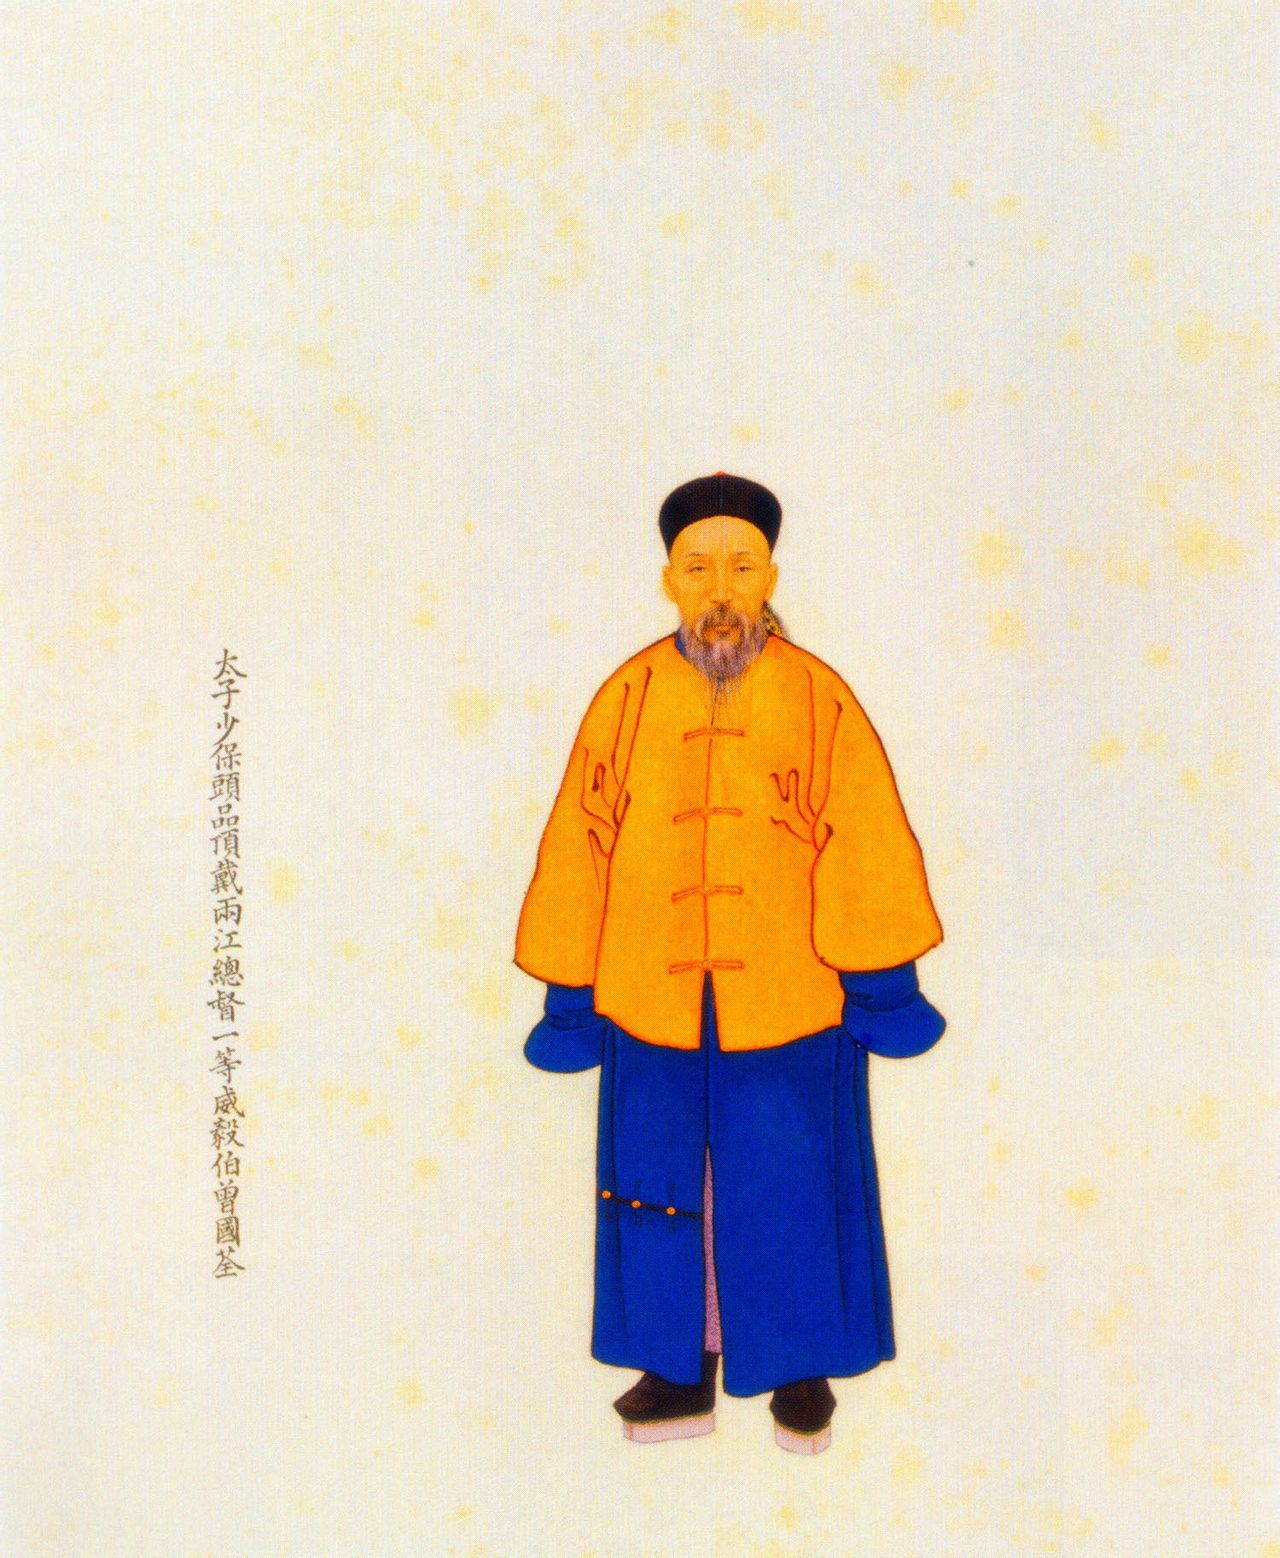 太子少保頭品頂戴兩江總督一等威毅伯曾國荃